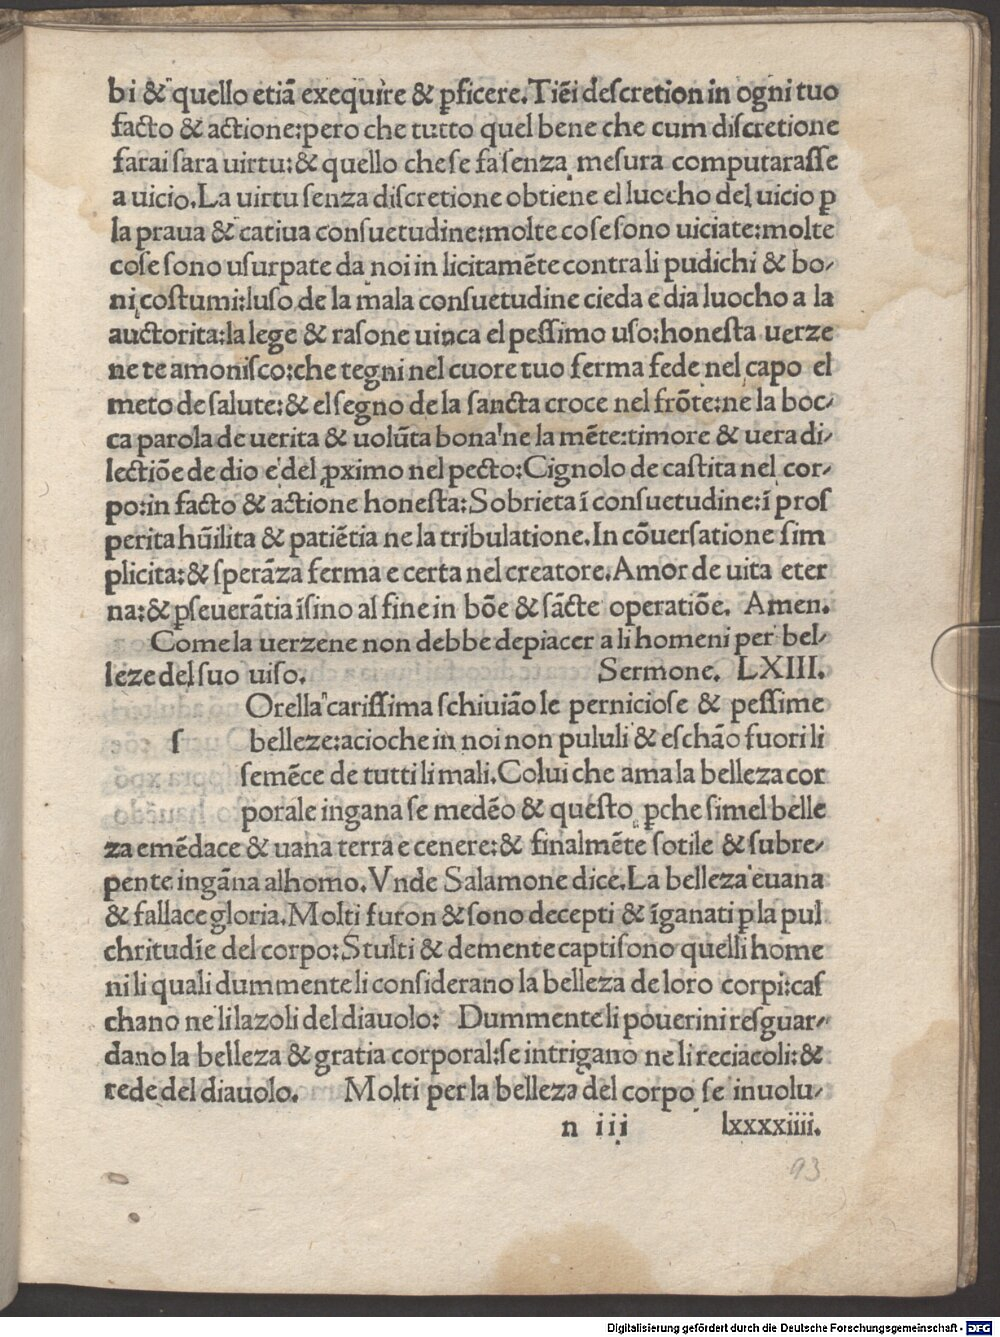 bi & quello etiã exequire & ꝑficere.Tiẽi deſcretion in ogni tuo
facto & actione:pero che tutto quel bene che cum diſcretione
farai ſara uirtu:& quello che ſe fa ſenza meſura computaraſſe
a uicio.La uirtu ſenza diſcretione obtiene el luocho del uicio ꝑ
la praua & catiua conſuetudine:molte coſe ſono uiciate:molte
coſe ſono uſurpate da noi in licitamẽte contra li pudichi & bo⸗
ni coſtumi:luſo de la mala conſuetudine cieda e dia luocho a la
auctorita:la lege & raſone uinca el peſſimo uſo:honeſta uerze
ne te amoniſco:che tegni nel cuore tuo ferma fede nel capo el
meto de ſalute:& el ſegno de la ſancta croce nel frõte:ne la boc⸗
ca parola de uerita & uolũta bona ne la mẽte:timore & uera di⸗
lectiõe de dio e del ꝓximo nel pecto:Cignolo de caſtita nel cor⸗
po:in facto & actione honeſta:Sobrieta ĩ conſuetudine:ĩ proſ
perita hũilita & patiẽtia ne la tribulatione.In cõuerſatione ſim
plicita:& ſperãza ferma e certa nel creatore.Amor de uita eter
na:& ꝑſeuerãtia ĩſino al fine in bõe & ſãcte operatiõe. Amen.
Come la uerzene non debbe depiacer a li homeni per bel⸗
leze del ſuo uiſo. Sermone. LXIII.
Orella cariſſima ſchiuião le pernicioſe & peſſime
ſ belleze:acioche in noi non pululi & eſchão fuori li
ſemẽce de tutti li mali.Colui che ama la belleza cor
porale ingana ſe medẽo & queſto ꝑche ſimel belle
za e mẽdace & uana terra e cenere:& finalmẽte ſotile & ſubre⸗
pente ingãna alhomo.Vnde Salamone dice.La belleza e uana
& fallace gloria.Molti furon & ſono decepti & ĩganati ꝑ la pul
chritudĩe del corpo:Stulti & demente capti ſono quelli home
ni li quali dummente li conſiderano la belleza de loro corpi:caſ
chano ne li lazoli del diauolo: Dummente li pouerini reſguar⸗
dano la belleza & gratia corporal:ſe intrigano ne li reciacoli:&
rede del diauolo. Molti per la belleza del corpo ſe inuolu⸗
n iii lxxxxiiii.
93
Digitalisierung gefördert durch die Deutsche Forschungsgemeinschaft - DFG